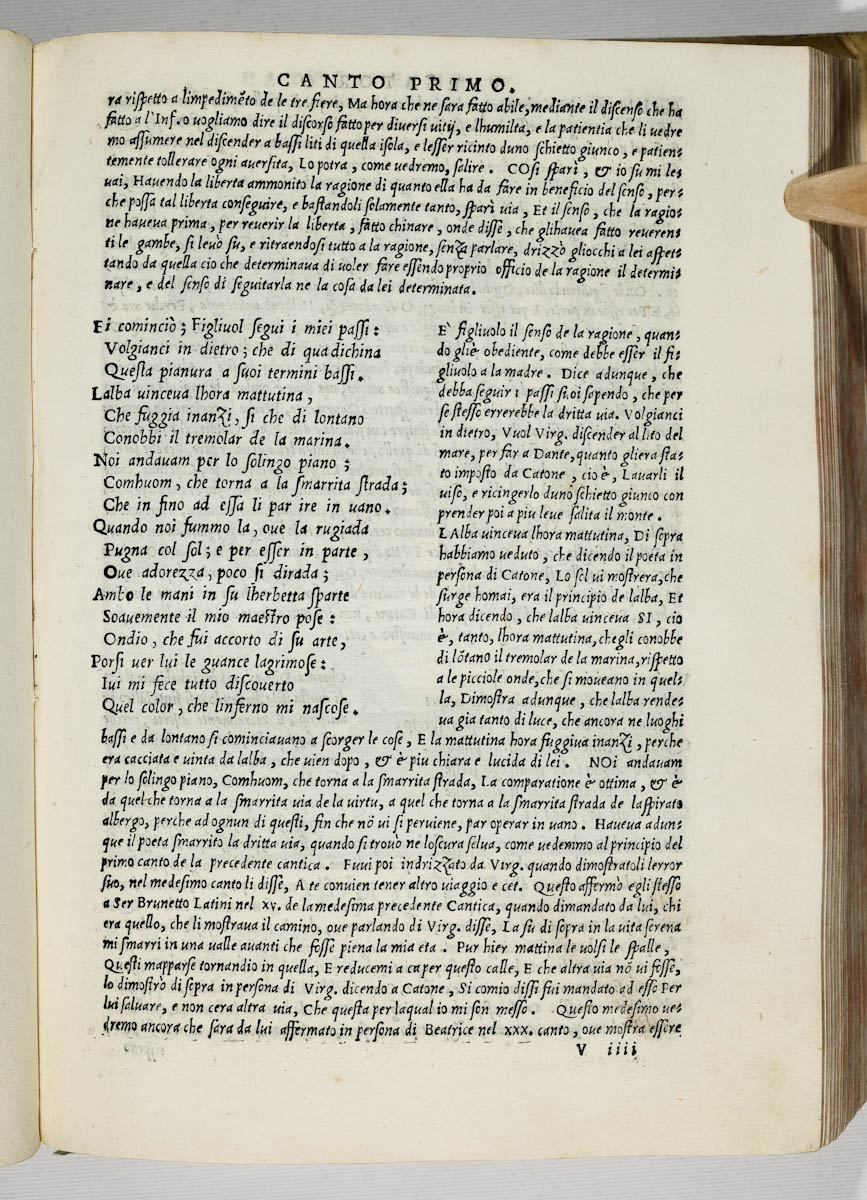 CANTO PRIMO.
ra rispetto a limpedimẽto de le tre fiere, Ma hora che ne sara fatto abile, mediante il discenso che ha
fatto a l'Inf. o uogliamo dire il discorso fatto per diversi uitij, e lhumilta, e la patientia che li uedre
mo assumere nel discender a bassi liti di quella isola, e lesser ricinto duno schietto giunco, e patien-
temente tollerare ogni aversita, Lo potra, come uedremo, salire. COSi sparì, & io su mi le-
uai, Hauendo la liberta ammonito la ragione di quanto ella ha da fare in beneficio del senso, per-
che possa tal liberta conseguire, e bastandoli solamente tanto, sparì uia, Et il senso, che la ragio-
ne haueua prima, per reuerir la liberta, fatto chinare, onde disse, che glihauea fatto reueren-
ti le gambe, si leuò su, e ritraendosi tutto a la ragione, senza parlare, drizzò gliocchi a lei aspet-
tando da quella cio che determinaua di uoler fare essendo proprio officio de la ragione il determi-
nare, e del senso di seguitarla ne la cosa da lei determinata.
Ei cominciò; Figliuol segui i miei passi:
Volgianci in dietro; che di qua dichina
Questa pianura a suoi termini bassi.
Lalba uinceua lhora mattutina,
Che fuggia inanzi, si che di lontano
Conobbi il tremolar de la marina.
Noi andauam per lo solingo piano;
Comhuom, che torna a la smarrita strada;
Che in fino ad essa li par ire in uano.
Quando noi fummo la, oue la rugiada
Pugna col sol; e per esser in parte,
Oue adorezza, poco si dirada;
Ambo le mani in su lherbetta sparte
Soauemente il mio maestro pose:
Ondio, che fui accorto di su arte,
Porsi uer lui le guance lagrimose:
Iui mi fece tutto discouerto
Quel color, che linferno mi nascose.
E' figliuolo il senso de la ragione, quan-
do gliè obediente, come debbe esser il fi-
gliuolo a la madre. Dice adunque, che
debba seguir i passi suoi sapendo, che per
se stesso errerebbe la dritta uia. Volgianci
in dietro, Vuol Virg. discender al lito del
mare, per far a Dante, quanto gliera sta-
to imposto da Catone, cio è, Lauarli il
uiso, e ricingerlo duno schietto giunco con
prender poi a piu leue salita il monte.
LAlba uinceua lhora mattutina, Di sopra
habbiamo ueduto, che dicendo il poeta in
persona di Catone, Lo sol ui mostrera, che
surge homai, era il principio de lalba, Et
hora dicendo, che lalba uinceua SI, cio
è, tanto, lhora mattutina, chegli conobbe
di lõtano il tremolar de la marina, rispetto
a le picciole onde, che si moueano in quel-
la, Dimostra adunque, che lalba rende-
ua gia tanto di luce, che ancora ne luoghi
bassi e da lontano si cominciauano a scorger le cose, E la mattutina hora fuggiua inanzi, perche
era cacciata e uinta da lalba, che uien dopo, & è piu chiara e lucida di lei. NOi andauam
per lo solingo piano, Comhuom, che torna a la smarrita strada, La comparatione è ottima, & è
da quel che torna a la smarrita uia de la uirtu, a quel che torna a la smarrita strada de laspirato
albergo, perche ad ognun di questi, fin che nõ ui si peruiene, par operar in uano. Haueua adun-
que il poeta smarrito la dritta uia, quando si trouò ne loscura selua, come uedemmo al principio del
primo canto de la precedente cantica. Fuui poi indrizzato da Virg. quando dimostratoli lerror
suo, nel medesimo canto li disse, A te conuien tener altro uiaggio e cet. Questo affermò egli stesso
a Ser Brunetto Latini nel xv. de la medesima precedente Cantica, quando dimandato da lui, chi
era quello, che li mostraua il camino, oue parlando di Virg. disse, La su di sopra in la uita serena
mi smarri in una ualle auanti che fosse piena la mia eta. Pur hier mattina le uolsi le spalle,
Questi mapparse tornandio in quella, E reducemi a ca per questo calle, E che altra uia nõ ui fosse,
lo dimostrò di sopra in persona di Virg. dicendo a Catone, Si comio dissi fui mandato ad esso Per
lui saluare, e non cera altra uia, Che questa per laqual io mi son messo. Questo medesimo ue-
dremo ancora che sara da lui affermato in persona di Beatrice nel xxx. canto, oue mostra essere
V iiii